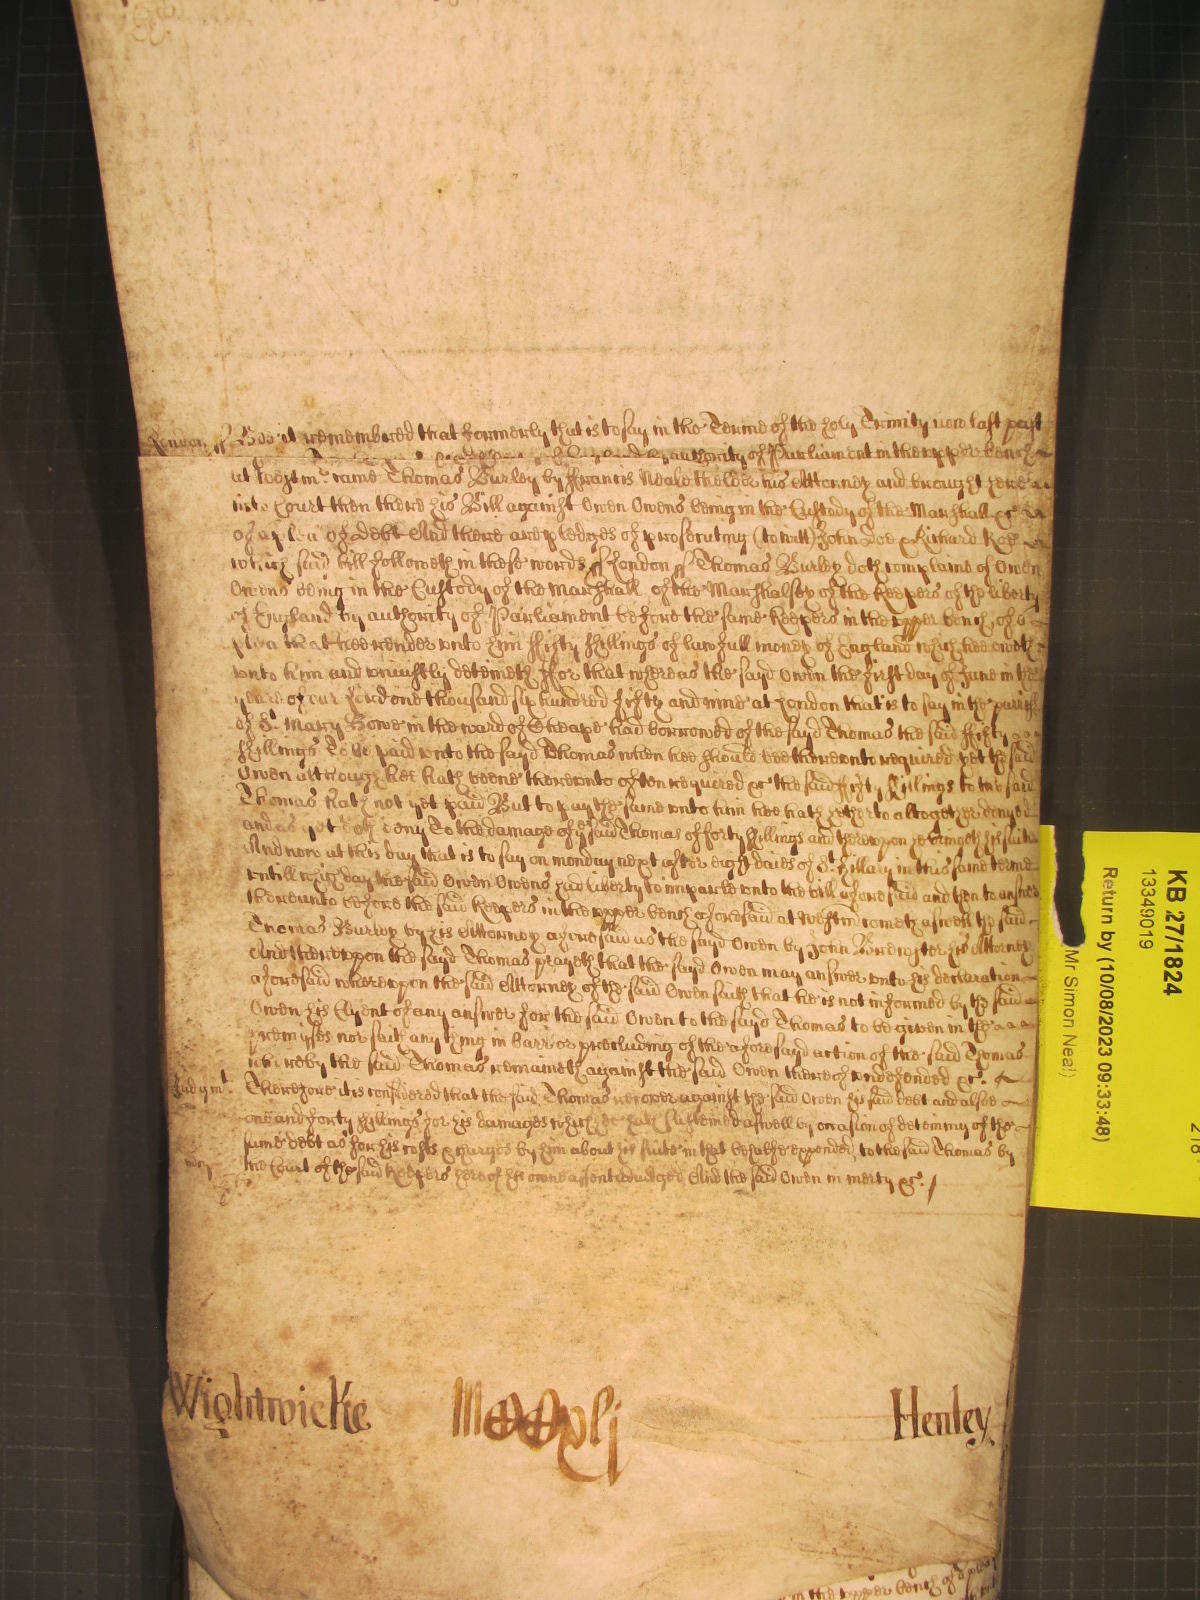 London ss Bee it remembered that formerly that is to say in the Terme of the holy Trinity now last past
authority of Parliament in the upper bench
at Westmr. came Thomas Burley by ffrancis Neale his Attorney and brought here
into Court then there his Bill against Owen Owens being in the Custody of the Marshall &c
of a plea of debt And there are pledges of prosecuting (to witt) John Doe & Richard Roe
which said bill followeth in these words ss London ss Thomas Burley doth complaine of Owen
Owens being in the Custody of the Marshall of the Marshalsey of the Keepers of the liberty
of England by authority of Parliament before the same Keepers in the upper bench of a
plea that hee render unto him ffifty shillings of lawfull money of England which hee oweth
unto him and uniustly deteineth ffor that whereas the sayd Owen the first day of June in the
yeare of our Lord one thousand six hundred fifty and nine at London that is to say in the parish
of St. Mary Bowe in the ward of Cheape had borrowed of the sayd Thomas the said ffifty
shillings To be paid unto the sayd Thomas when hee should bee thereunto required yet the said
Owen although hee hath beene thereunto often required &c the said ffifty shillings to the said
Thomas hath not yet paid But to pay the same unto him hee hath hetherto altogether denyed
and as yet doth deny To the damage of ye said Thomas of forty shillings and thereupon he bringeth his suite
And now at this day that is to say on monday next after eight daies of St. Hillary in this same terme
untill which day the said Owen Owens had liberty to imparle unto the bill aforesaid and then to answer
thereunto before the said Keepers in the upper bench aforesaid at Westm cometh aswell the said
Thomas Burley by his Attorney aforesaid as the sayd Owen by John Brewster his Attorney
And thereupon the sayd Thomas prayeth that the sayd Owen may answer unto his declaration
aforesaid whereupon the said Attorney of the said Owen saith that he is not informed by the said
Owen his Clyent of any answer for the said Owen to the sayd Thomas to be given in the
premisses nor saith any thing in barr or precluding of the aforesayd action of the said Thomas
whereby the said Thomas remaineth against the said Owen thereof undefended &c.
Judgmt. Therefore it is considered that the said Thomas recover against the said Owen his said debt and alsoe
one and forty shillings for his damages which he hath susteined aswell by occasion of deteining of the
same debt as for his costs & charges by him about his suite in that behalfe expended to the said Thomas by
mcy the Court of the said Keepers here of his owne assent adiudged And the said Owen in mercy &c.
Wightwicke
Henley
in the upper bench of a plea
KB 27/1824
13349019
Return by (10/08/2023 09:33:48)
Mr Simon Neal)